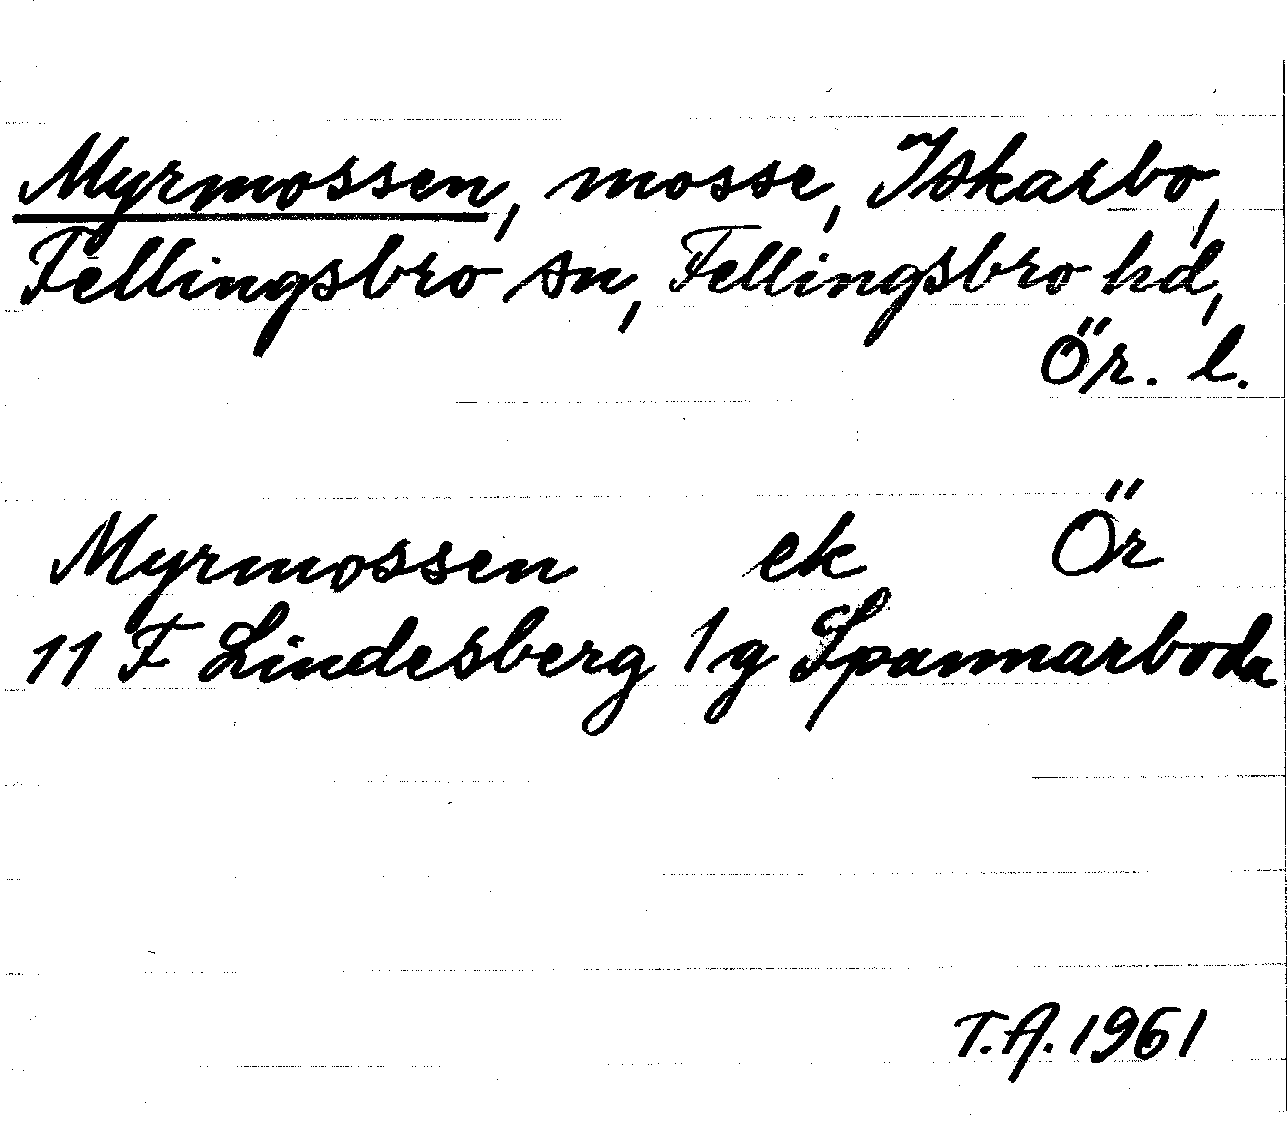 Myrmossen, mosse, Iskarbo,
Fellingsbro sn, Fellingsbro hd,
Ör. l.
Myrmossen ek Ör
11 F Lindesberg 1g Spannarboda
T.A. 1961